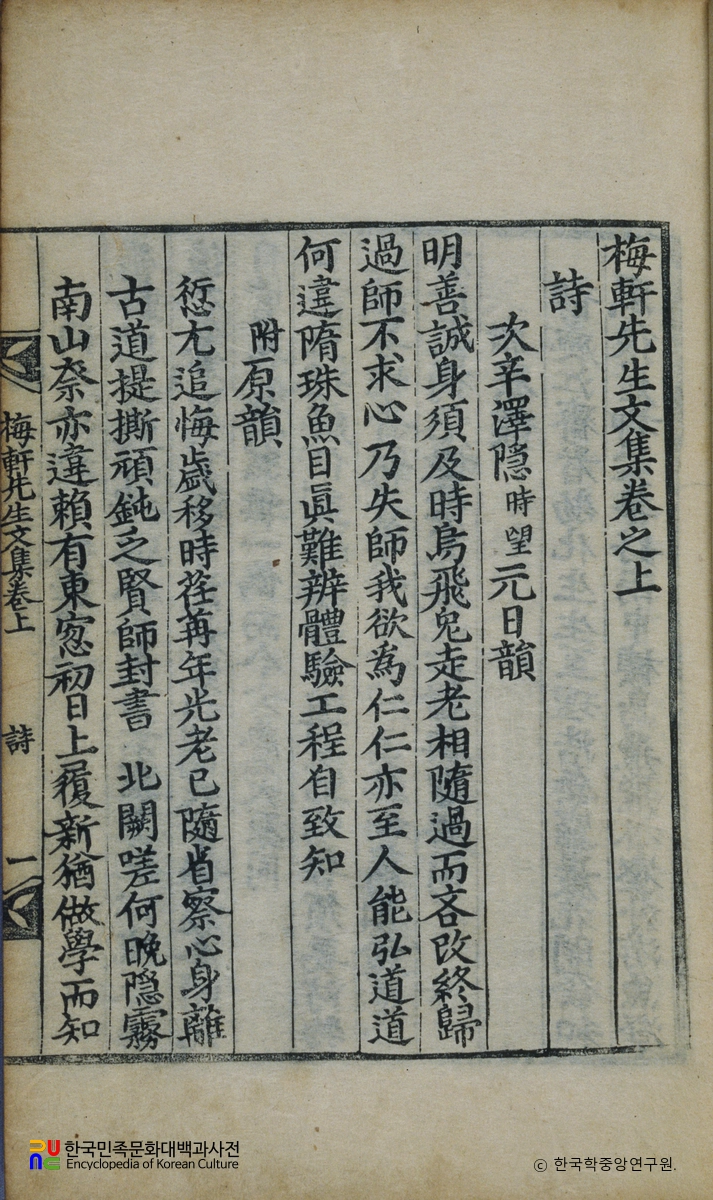 梅軒先生文集卷之上
詩
次辛澤隐時望元日韻
明善誠身須及時烏飛兔走老相隨過而吝改終歸
過師不求心乃失師我欲為仁仁亦至人能弘道道
何違隋珠魚目眞難辨體驗工程自致知
附原韻
愆尤追悔歲移時荏苒年光老已隨省察心身離
古道提撕頑鈍乏賢師封書 北闕嗟何晩隐霧
南山奈亦違賴有東窓初日上履新猶做學而知
梅軒先生文集卷上
詩
一
한국민족문화대백과사전
Encyclopedia of Korean Culture
ⓒ 한국학중앙연구원.